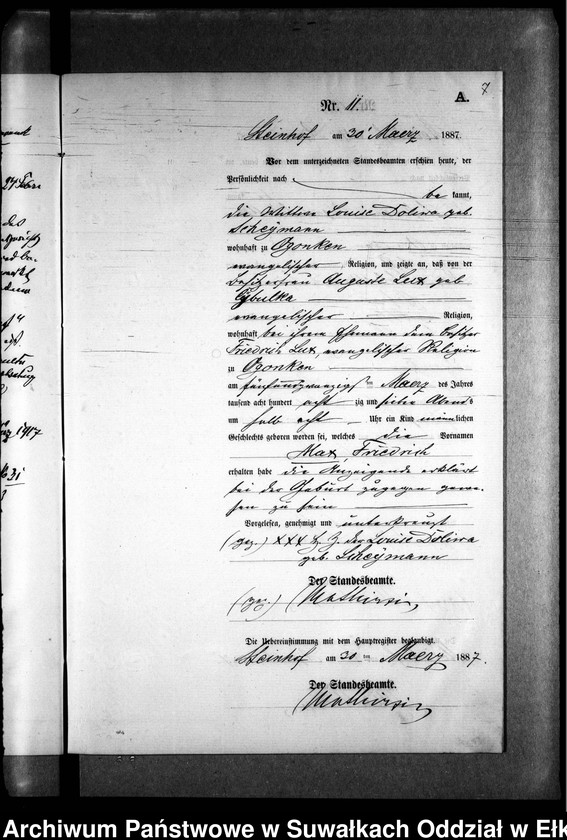 7
A.
Nr. 11.
Steinhof am 30t Maerz 1887.
Vor dem unterzeichneten Standesbeamten erschien heute, der
Persönlichkeit nach
be kannt,
die Wittwe Louise Doliwa geb.
Scheymann
wohnhaft zu Czonken
evangelischer Religion, und zeigte an, daß von der
Besitzerfrau Auguste Lux geb
Cybulka
evangelischer Religion,
wohnhaft bei ihrem Ehemann dem Besitzer
Friedrich Lux, evangelischer Religion
zu Czonken
am fünfundzwanzigs ten Maerz des Jahres
tausend acht hundert acht zig und sieben Abends
um halb acht Uhr ein Kind männlichen
Geschlechts geboren worden sei, welches die Vornamen
Max, Friedrich
erhalten habe die Anzeigende erklärt
bei der Geburt zugegen gewe-
sen zu sein
Vorgelesen, genehmigt und unterkreuzt
(gez.) XXX H. Z. der Louise Doliwa
geb. Scheymann
Der Standesbeamte.
(gez.)
Die Uebereinstimmung mit dem Hauptregister beglaubigt.
Steinhof am 30 ten Maerz 1887.
Der Standesbeamte.
Archiwum Państwowe w Suwałkach Oddział w Ełk